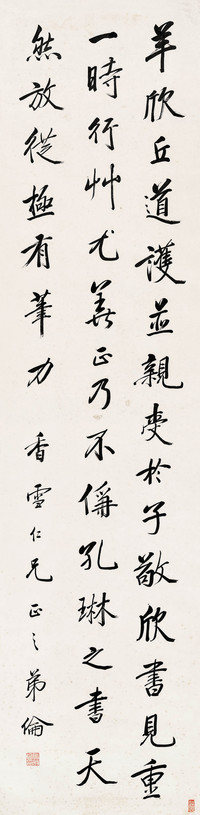 羊欣丘道護並親受於子敬欣書見重
一時行艸尤善正乃不偁孔琳之書天
然放從極有筆力 香雪仁兄正之 弟倫